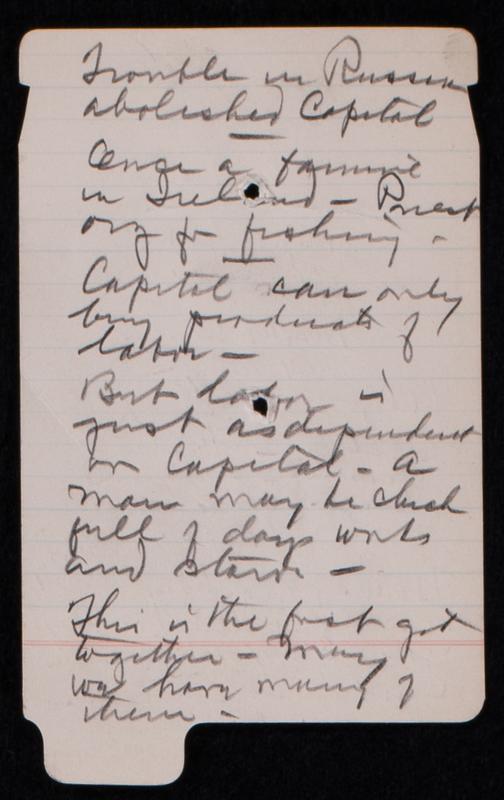 Trouble in Russia
abolished Capital
Once a famine
in Ireland - Priest
org for fishing -
Capital can only
buy products of
labor -
But labor is
just as dependent
on Capital - a
man may be chuck
full of days works
and starve -
This is the first get
together - May
we have many of
them -